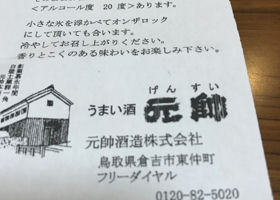 ＜アルコール度　20　度＞あります。
小さな氷を浮かべてオンザロック
にして頂いても合います。
冷やしてお召し上がりください。
香りとこくのある味わいをお楽しみ下さい。
げんすい
うまい酒 元帥
元帥酒造株式会社
鳥取県倉吉市東仲町
フリーダイヤル
0120-82-5020